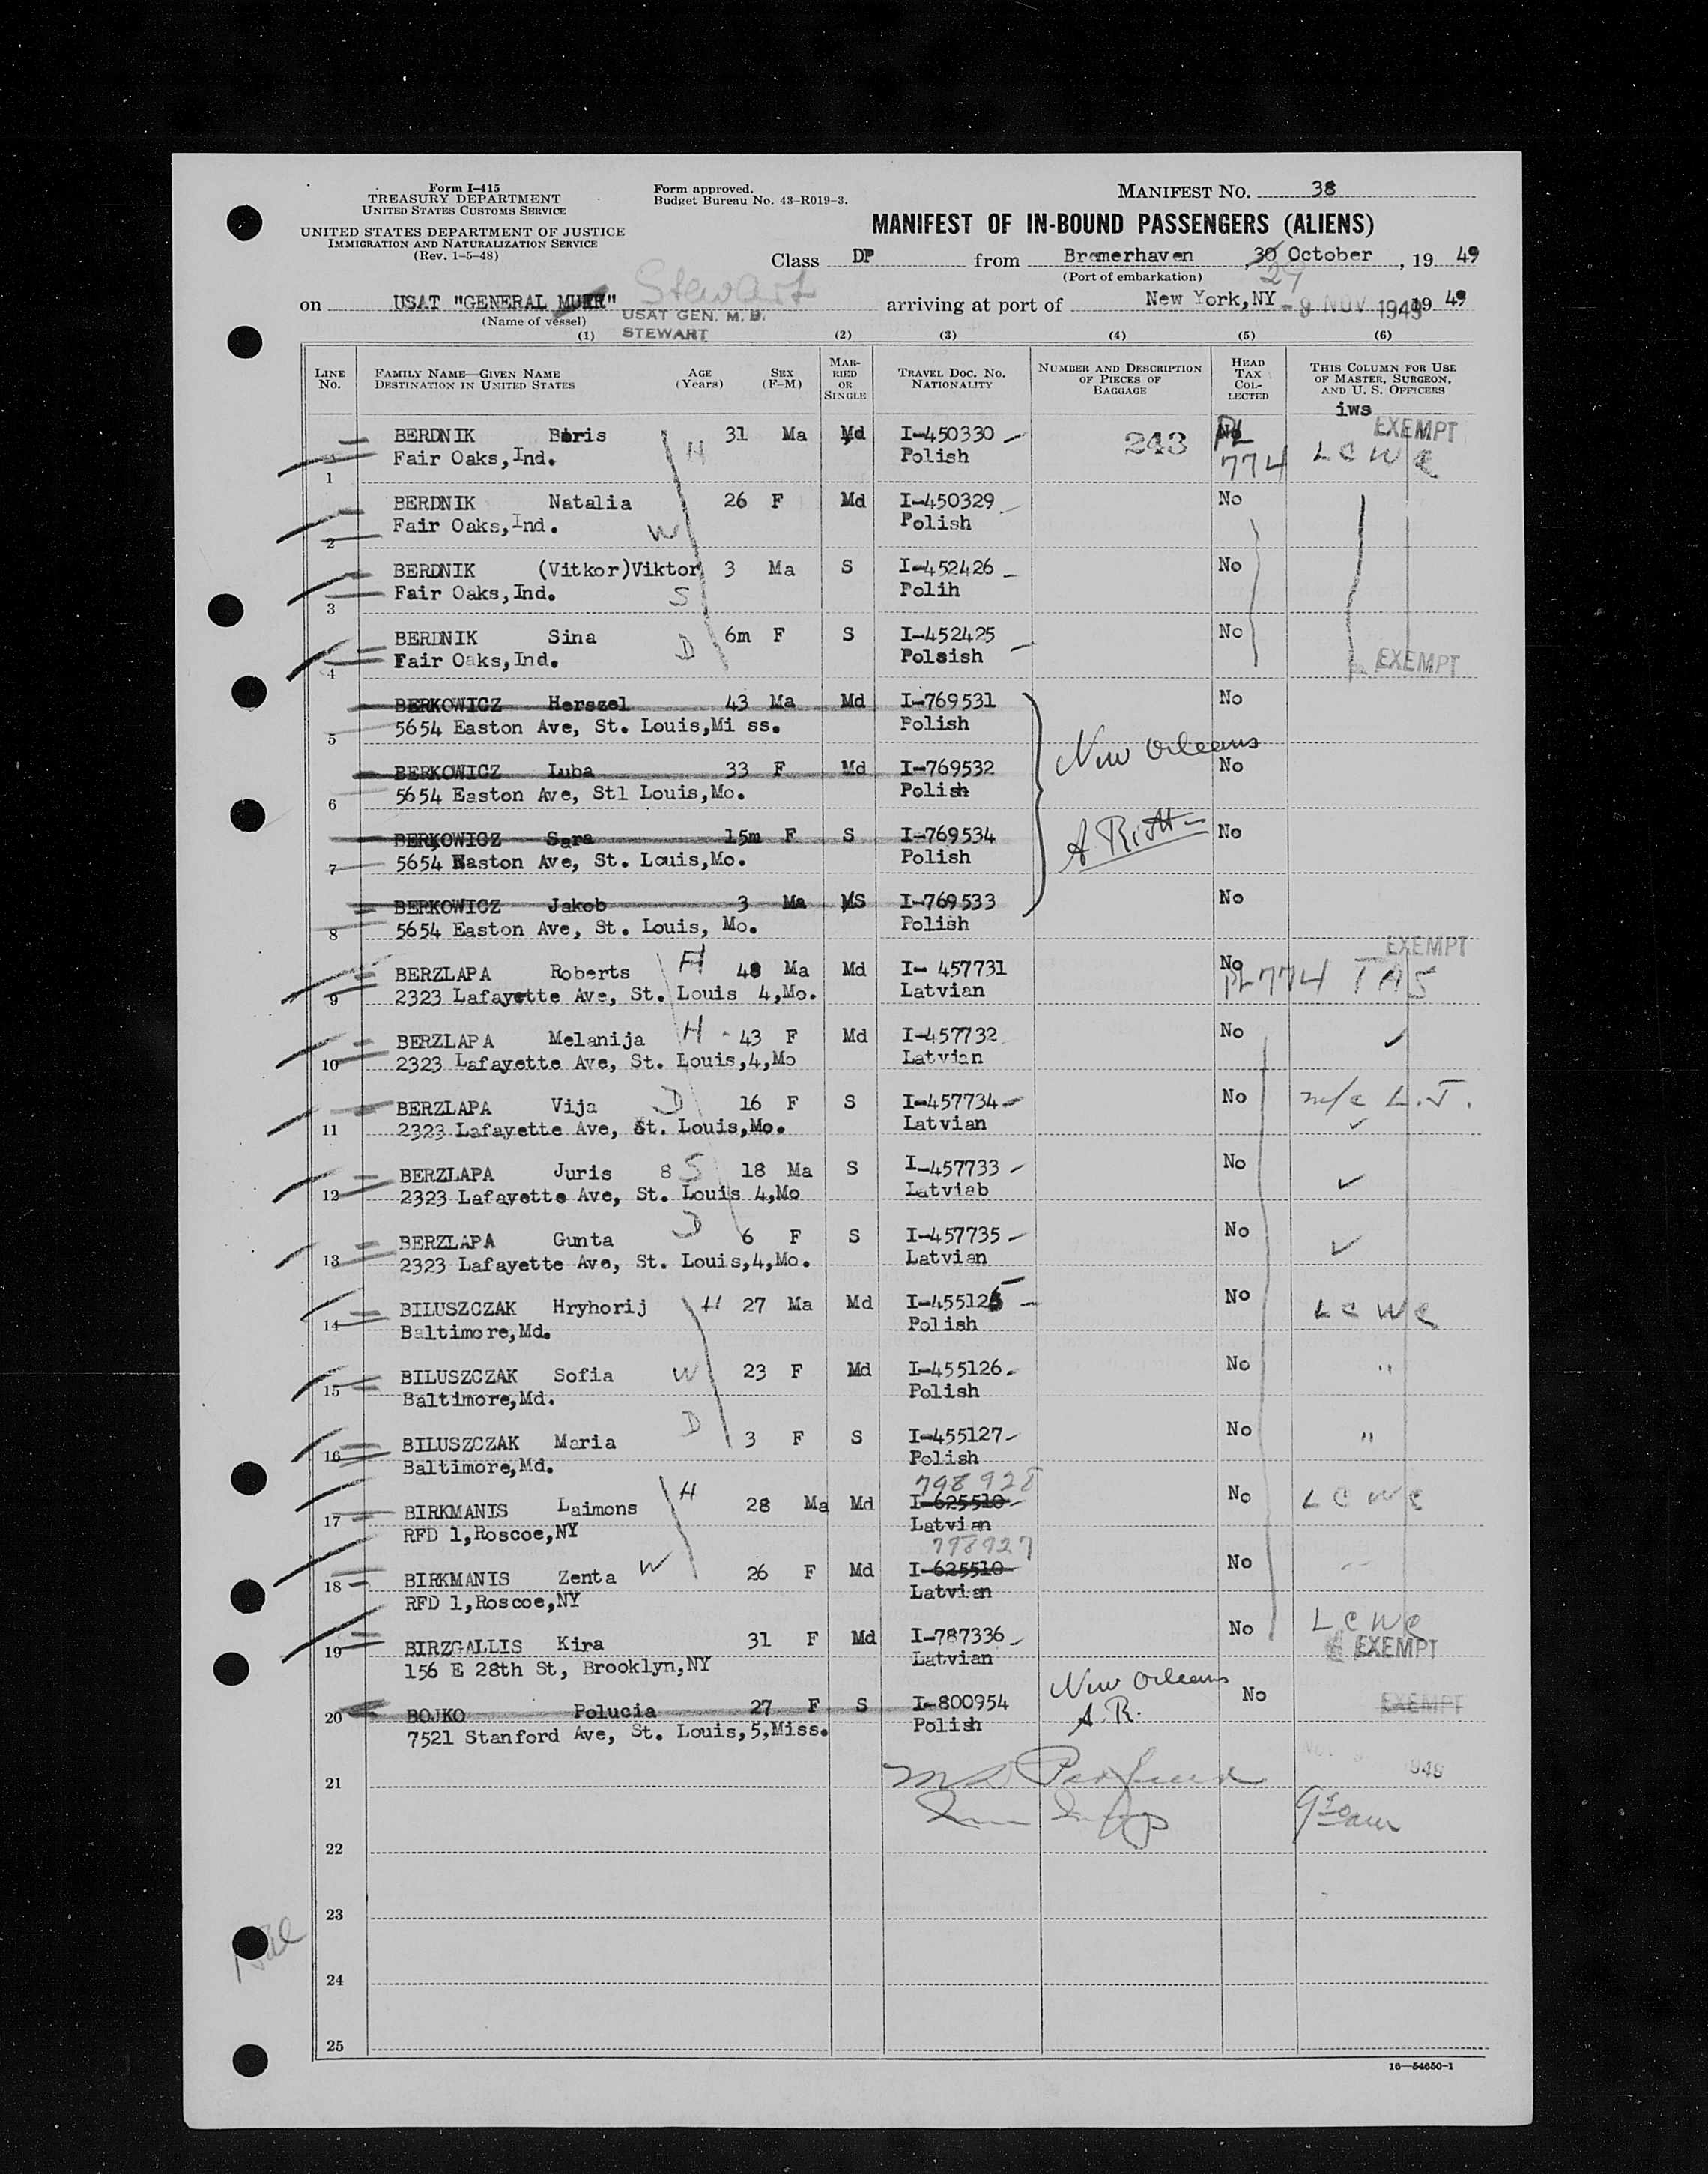 Form I-415
TREASURY DEPARTMENT
UNITED STATES CUSTOMS SERVICE
UNITED STATES DEPARTMENT OF JUSTICE
IMMIGRATION AND NATURALIZATION SERVICE
(Rev. 1-5-48)
Form approved.
Budget Bureau No. 43-R019-3.
MANIFEST NO. 38
MANIFEST OF IN-BOUND PASSENGERS (ALIENS)
Class DP from Bremerhaven , 30 October , 19 49
(Port of embarkation) 27
Stewart
on USAT "GENERAL MUIR" arriving at port of New York, NY - 9 NOV 1949 , 19 49
(Name of vessel) USAT GEN. M. B.
STEWART
(1) (2) (3) (4) (5) (6)
LINE No. FAMILY NAME—GIVEN NAME DESTINATION IN UNITED STATES AGE (Years) SEX (F-M) MARRIED OR SINGLE TRAVEL DOC. NO. NATIONALITY NUMBER AND DESCRIPTION OF PIECES OF BAGGAGE HEAD TAX COLLECTED THIS COLUMN FOR USE OF MASTER, SURGEON, AND U. S. OFFICERS
iws
EXEMPT
BERDNIK Boris H 31 Ma Md I-450330 243 No PL
1 Fair Oaks, Ind. Polish 774 LCWC
BERDNIK Natalia 26 F Md I-450329 No
2 Fair Oaks, Ind. W Polish
BERDNIK (Vitkor)Viktor 3 Ma S I-452426 No
3 Fair Oaks, Ind. S Polih
BERDNIK Sina D 6m F S I-452425 No
4 Fair Oaks, Ind. Polsish EXEMPT
BERKOWICZ Herszel 43 Ma Md I-769531 No
5 5654 Easton Ave, St. Louis,Mi ss. Polish
New Orleans
BERKOWICZ Luba 33 F Md I-769532 No
6 5654 Easton Ave, Stl Louis,Mo. Polish
BERKOWICZ Sara 15m F S I-769534 No
7 5654 Easton Ave, St. Louis,Mo. Polish
BERKOWICZ Jakob 3 Ma MS I-769533 No
8 5654 Easton Ave, St. Louis, Mo. Polish
EXEMPT
BERZLAPA Roberts H 48 Ma Md I- 457731 No
9 2323 Lafayette Ave, St. Louis 4,Mo. Latvian PL 774 TAS
BERZLAPA Melanija H 43 F Md I-457732 No
10 2323 Lafayette Ave, St. Louis,4,Mo Latvian
BERZLAPA Vija D 16 F S I-457734 No m/c L.J.
11 2323 Lafayette Ave, St. Louis,Mo. Latvian
BERZLAPA Juris 8 S 18 Ma S I-457733 No
12 2323 Lafayette Ave, St. Louis 4,Mo Latviab
BERZLAPA Gunta D 6 F S I-457735 No
13 2323 Lafayette Ave, St. Louis,4,Mo. Latvian
BILUSZCZAK Hryhorij H 27 Ma Md I-455125 No LCWC
14 Baltimore,Md. Polish
BILUSZCZAK Sofia W 23 F Md I-455126 No "
15 Baltimore,Md. Polish
BILUSZCZAK Maria D 3 F S I-455127 No "
16 Baltimore,Md. Polish
798928
BIRKMANIS Laimons H 28 Ma Md I-625510 No LCWC
17 RFD 1,Roscoe,NY Latvian
798927
BIRKMANIS Zenta W 26 F Md I-625510 No
18 RFD 1,Roscoe,NY Latvian
BIRZGALLIS Kira 31 F Md I-787336 No LCWC
19 156 E 28th St, Brooklyn,NY Latvian EXEMPT
BOJKO Polucia 27 F S I-800954 New Orleans No EXEMPT
20 7521 Stanford Ave, St. Louis,5,Miss. Polish A.R.
21 1949
22
23
24
25
16—54650-1